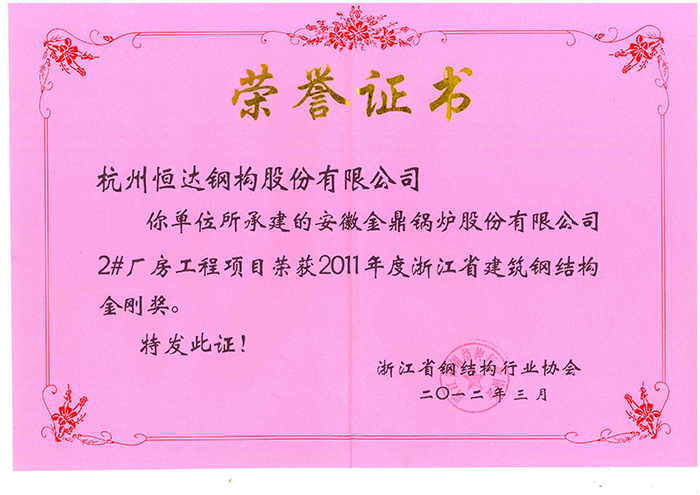 荣誉证书
杭州恒达钢构股份有限公司
你单位所承建的安徽金鼎锅炉股份有限公司
2#厂房工程项目荣获2011年度浙江省建筑钢结构
金刚奖。
特发此证！
浙江省钢结构行业协会
二〇一二年三月